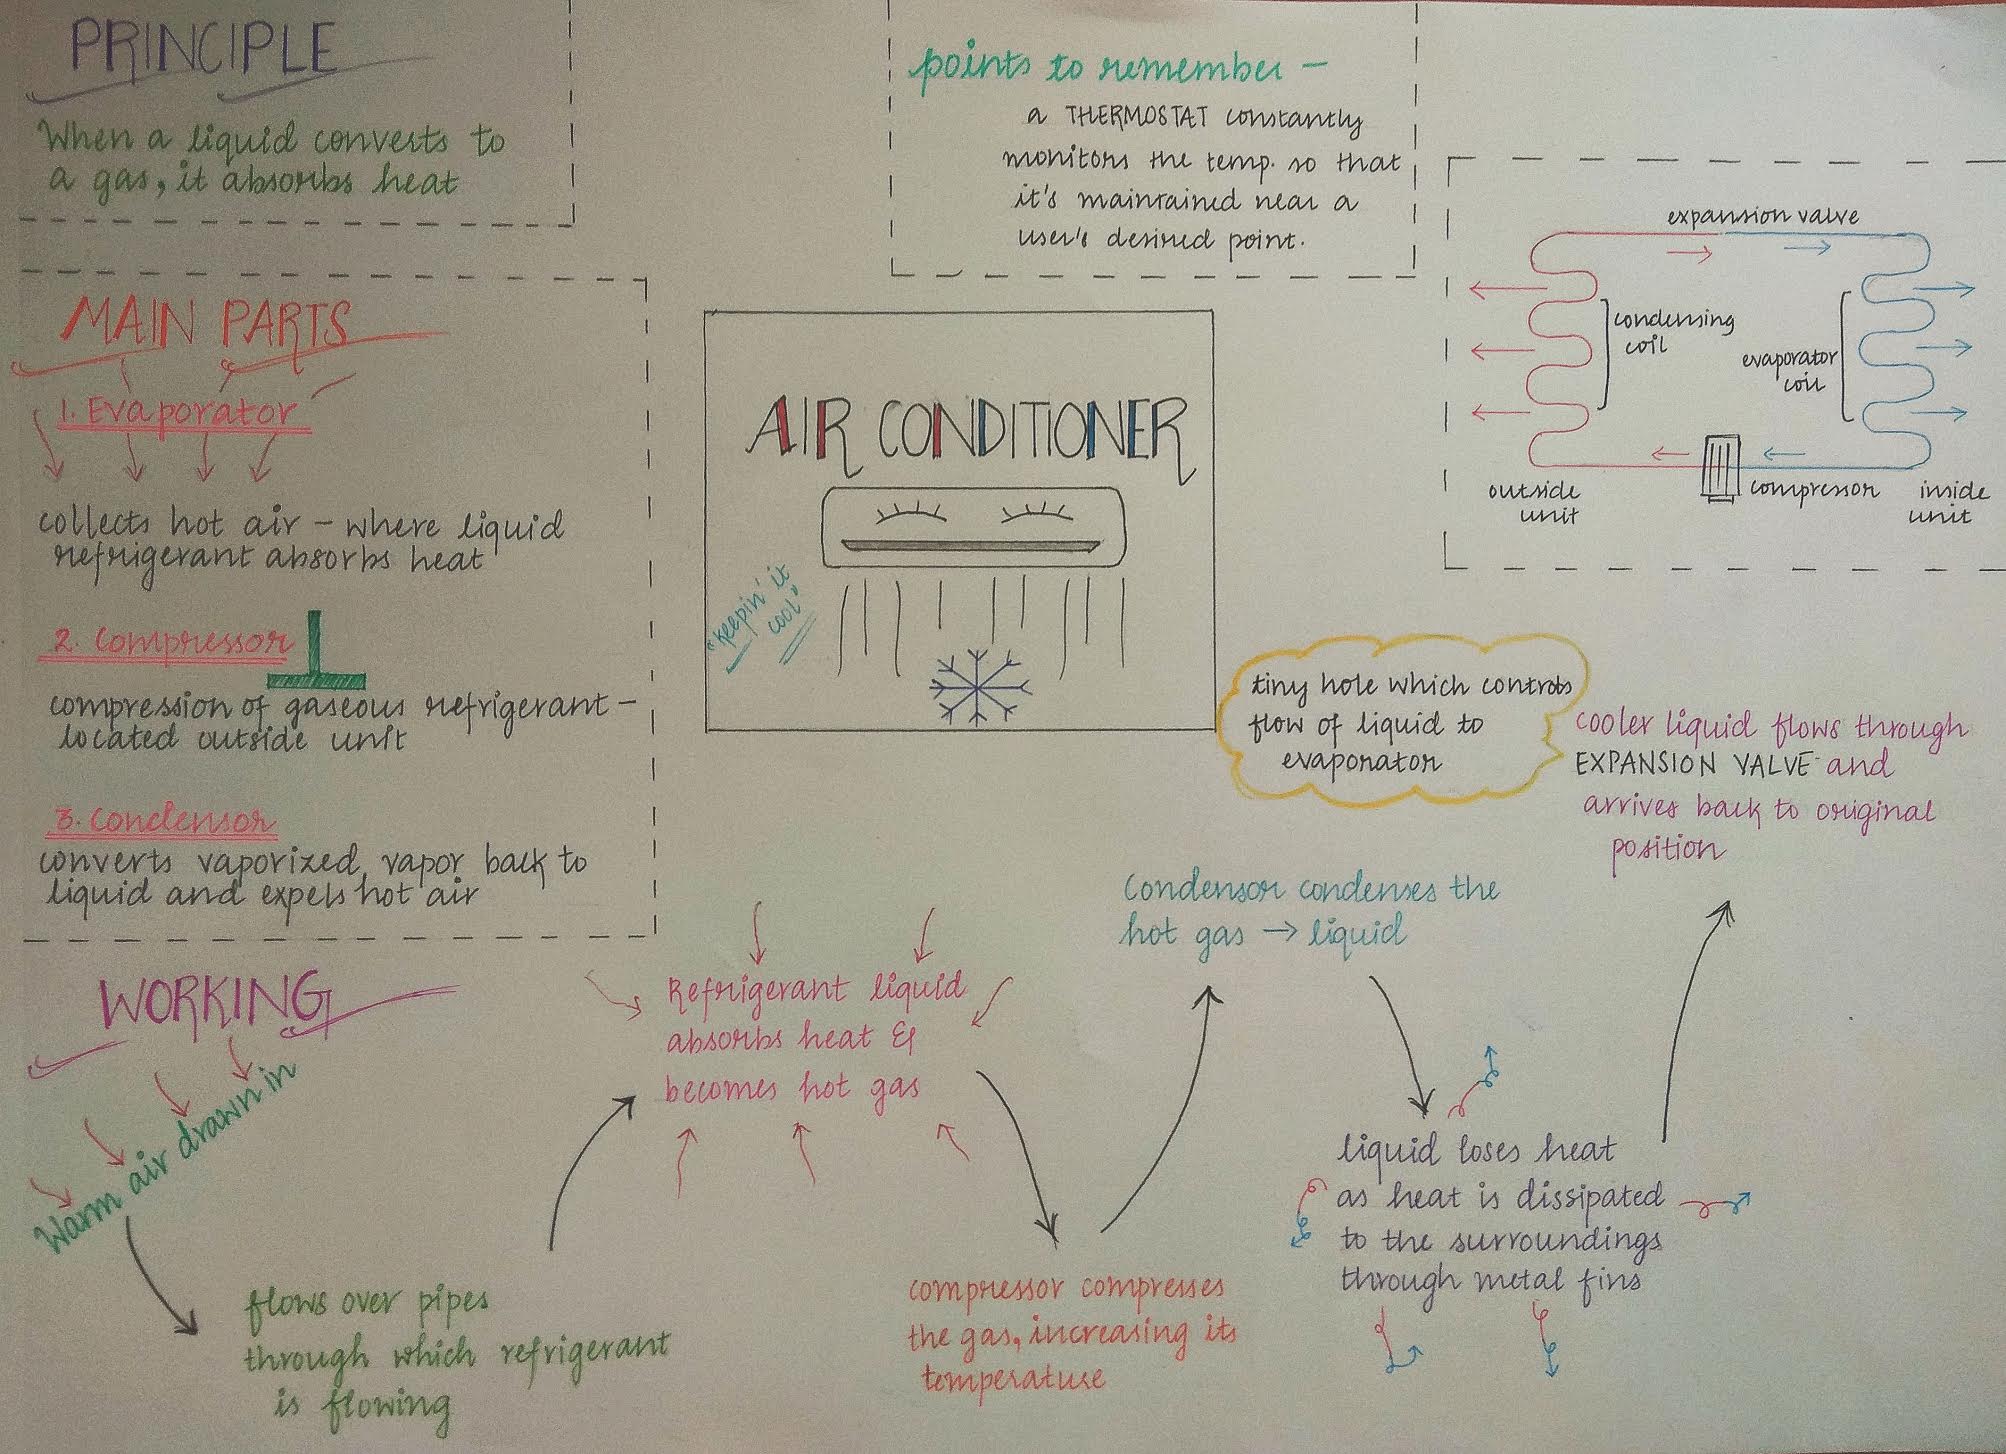 PRINCIPLE
When a liquid converts to
a gas, it absorbs heat
points to remember –
a THERMOSTAT constantly
monitors the temp. so that
it's maintained near a
user's desired point.
MAIN PARTS
1. Evaporator
collects hot air – where liquid
refrigerant absorbs heat
2. Compressor
compression of gaseous refrigerant –
located outside unit
3. Condensor
converts vaporized vapor back to
liquid and expels hot air
AIR CONDITIONER
"keepin' it
cool"
expansion valve
condensing
coil
evaporator
coil
compressor
outside
unit
inside
unit
WORKING
Warm air drawn in
flows over pipes
through which refrigerant
is flowing
Refrigerant liquid
absorbs heat &
becomes hot gas
compressor compresses
the gas, increasing its
temperature
Condensor condenses the
hot gas → liquid
liquid loses heat
as heat is dissipated
to the surroundings
through metal fins
cooler liquid flows through
EXPANSION VALVE and
arrives back to original
position
tiny hole which controls
flow of liquid to
evaporator